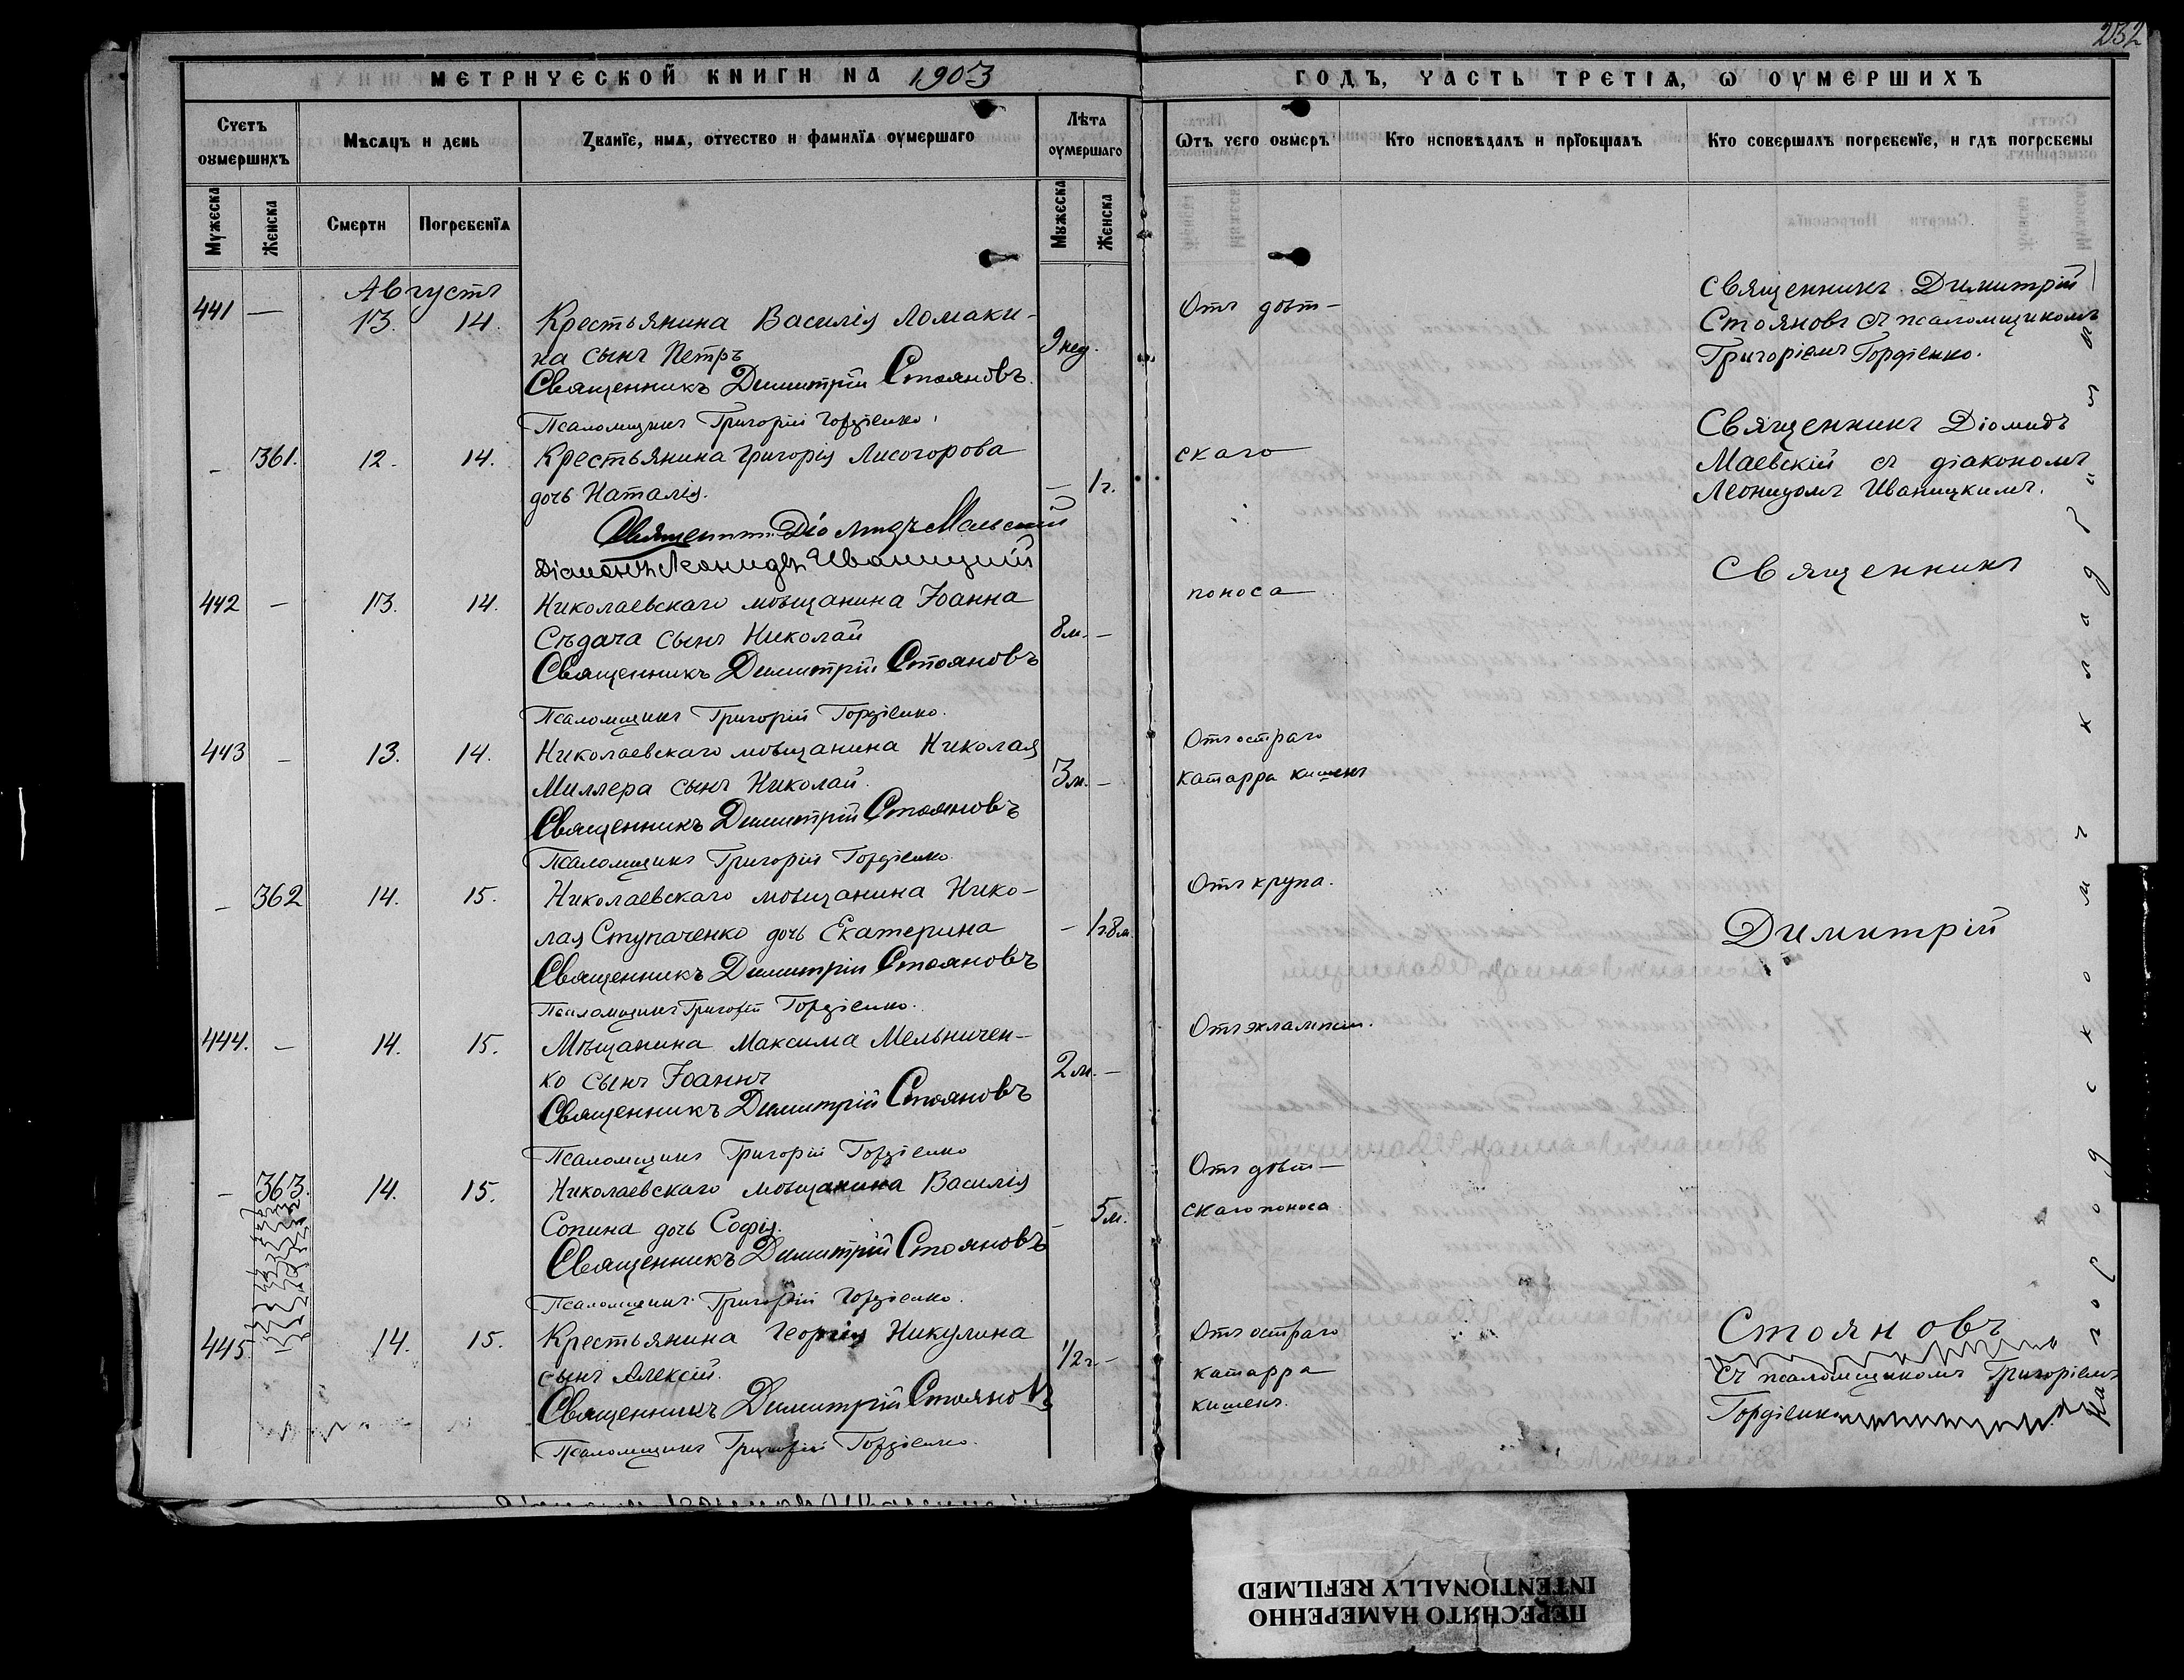 252
МЕТРИЧЕСКОЙ КНИГИ НА 1903
ГОДЪ, ЧАСТЬ ТРЕТІѦ, Ѡ ОУМЕРШИХЪ
Счетъ оумершихъ
Мѣсяцъ и день
Званїе, имя, отчество и фамилїа оумершаго
Лѣта оумершаго
Ѿтъ чего оумеръ
Кто исповѣдалъ и прїобщалъ
Кто совершалъ погребенїе, и гдѣ погребены
Мужеска
Женска
Смерти
Погребенїя
Мужеска
Женска
Августъ
441 — 13. 14. Крестьянина Василія Ломаки-
на сынъ Петръ 9 нед.
Священникъ Димитрій Стояновъ.
Псаломщикъ Григорій Гордіенко.
Отъ дѣт-
Священникъ Димитрій
Стояновъ съ псаломщикомъ
Григоріемъ Гордіенко.
— 361. 12. 14. Крестьянина Григорія Лисогорова
дочь Наталія. — 1 г.
Священникъ Діомидъ Маевскій
Діаконъ Леонидъ Иваницкій
скаго
Священникъ Діомидъ
Маевскій съ діакономъ
Леонидомъ Иваницкимъ.
442 — 13. 14. Николаевскаго мѣщанина Іоанна
Сѣдача сынъ Николай 8 м. —
Священникъ Димитрій Стояновъ
Псаломщикъ Григорій Гордіенко.
поноса
Священникъ
443 — 13. 14. Николаевскаго мѣщанина Николая
Миллера сынъ Николай. 3 м. —
Священникъ Димитрій Стояновъ
Псаломщикъ Григорій Гордіенко
Отъ остраго
катарра кишекъ
— 362 14. 15. Николаевскаго мѣщанина Нико-
лая Ступаченко дочь Екатерина — 1 г. 8 м.
Священникъ Димитрій Стояновъ
Псаломщикъ Григорій Гордіенко.
Отъ крупа.
Димитрій
444. — 14. 15. Мѣщанина Максима Мельничен-
ко сынъ Іоаннъ 2 м. —
Священникъ Димитрій Стояновъ
Псаломщикъ Григорій Гордіенко
Отъ эклампсіи.
— 363. 14. 15. Николаевскаго мѣщанина Василія
Сопина дочь Софія. — 5 м.
Священникъ Димитрій Стояновъ
Псаломщикъ Григорій Гордіенко.
Отъ дѣт-
скаго поноса
445. 14. 15. Крестьянина Георгія Никулина
сынъ Алексій. 1/2 г. —
Священникъ Димитрій Стояновъ
Псаломщикъ Григорій Гордіенко.
Отъ остраго
катарра
кишекъ.
Стояновъ
съ псаломщикомъ Григоріемъ
Гордіенко
На городскомъ кладбищѣ
ПЕРЕСНЯТО НАМЕРЕННО
INTENTIONALLY REFILMED